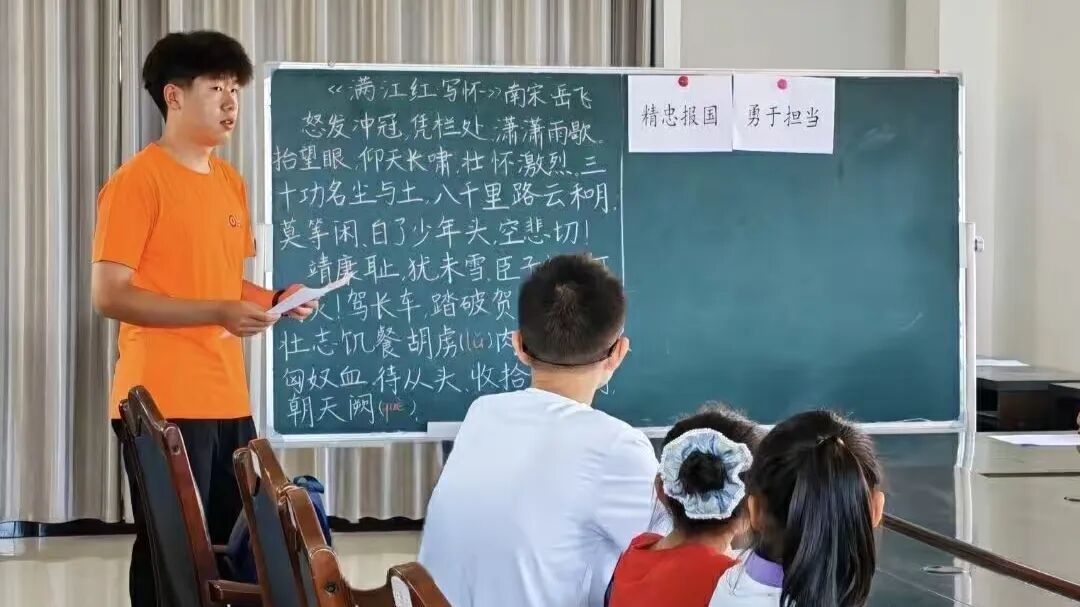 《满江红·写怀》南宋·岳飞
怒发冲冠,凭栏处、潇潇雨歇。
抬望眼,仰天长啸,壮怀激烈。三
十功名尘与土,八千里路云和月。
莫等闲、白了少年头,空悲切!
靖康耻,犹未雪,臣子
灭!驾长车,踏破贺
壮志饥餐胡虏(lǔ)肉
匈奴血,待从头、收拾
朝天阙(què)。
精忠报国
勇于担当